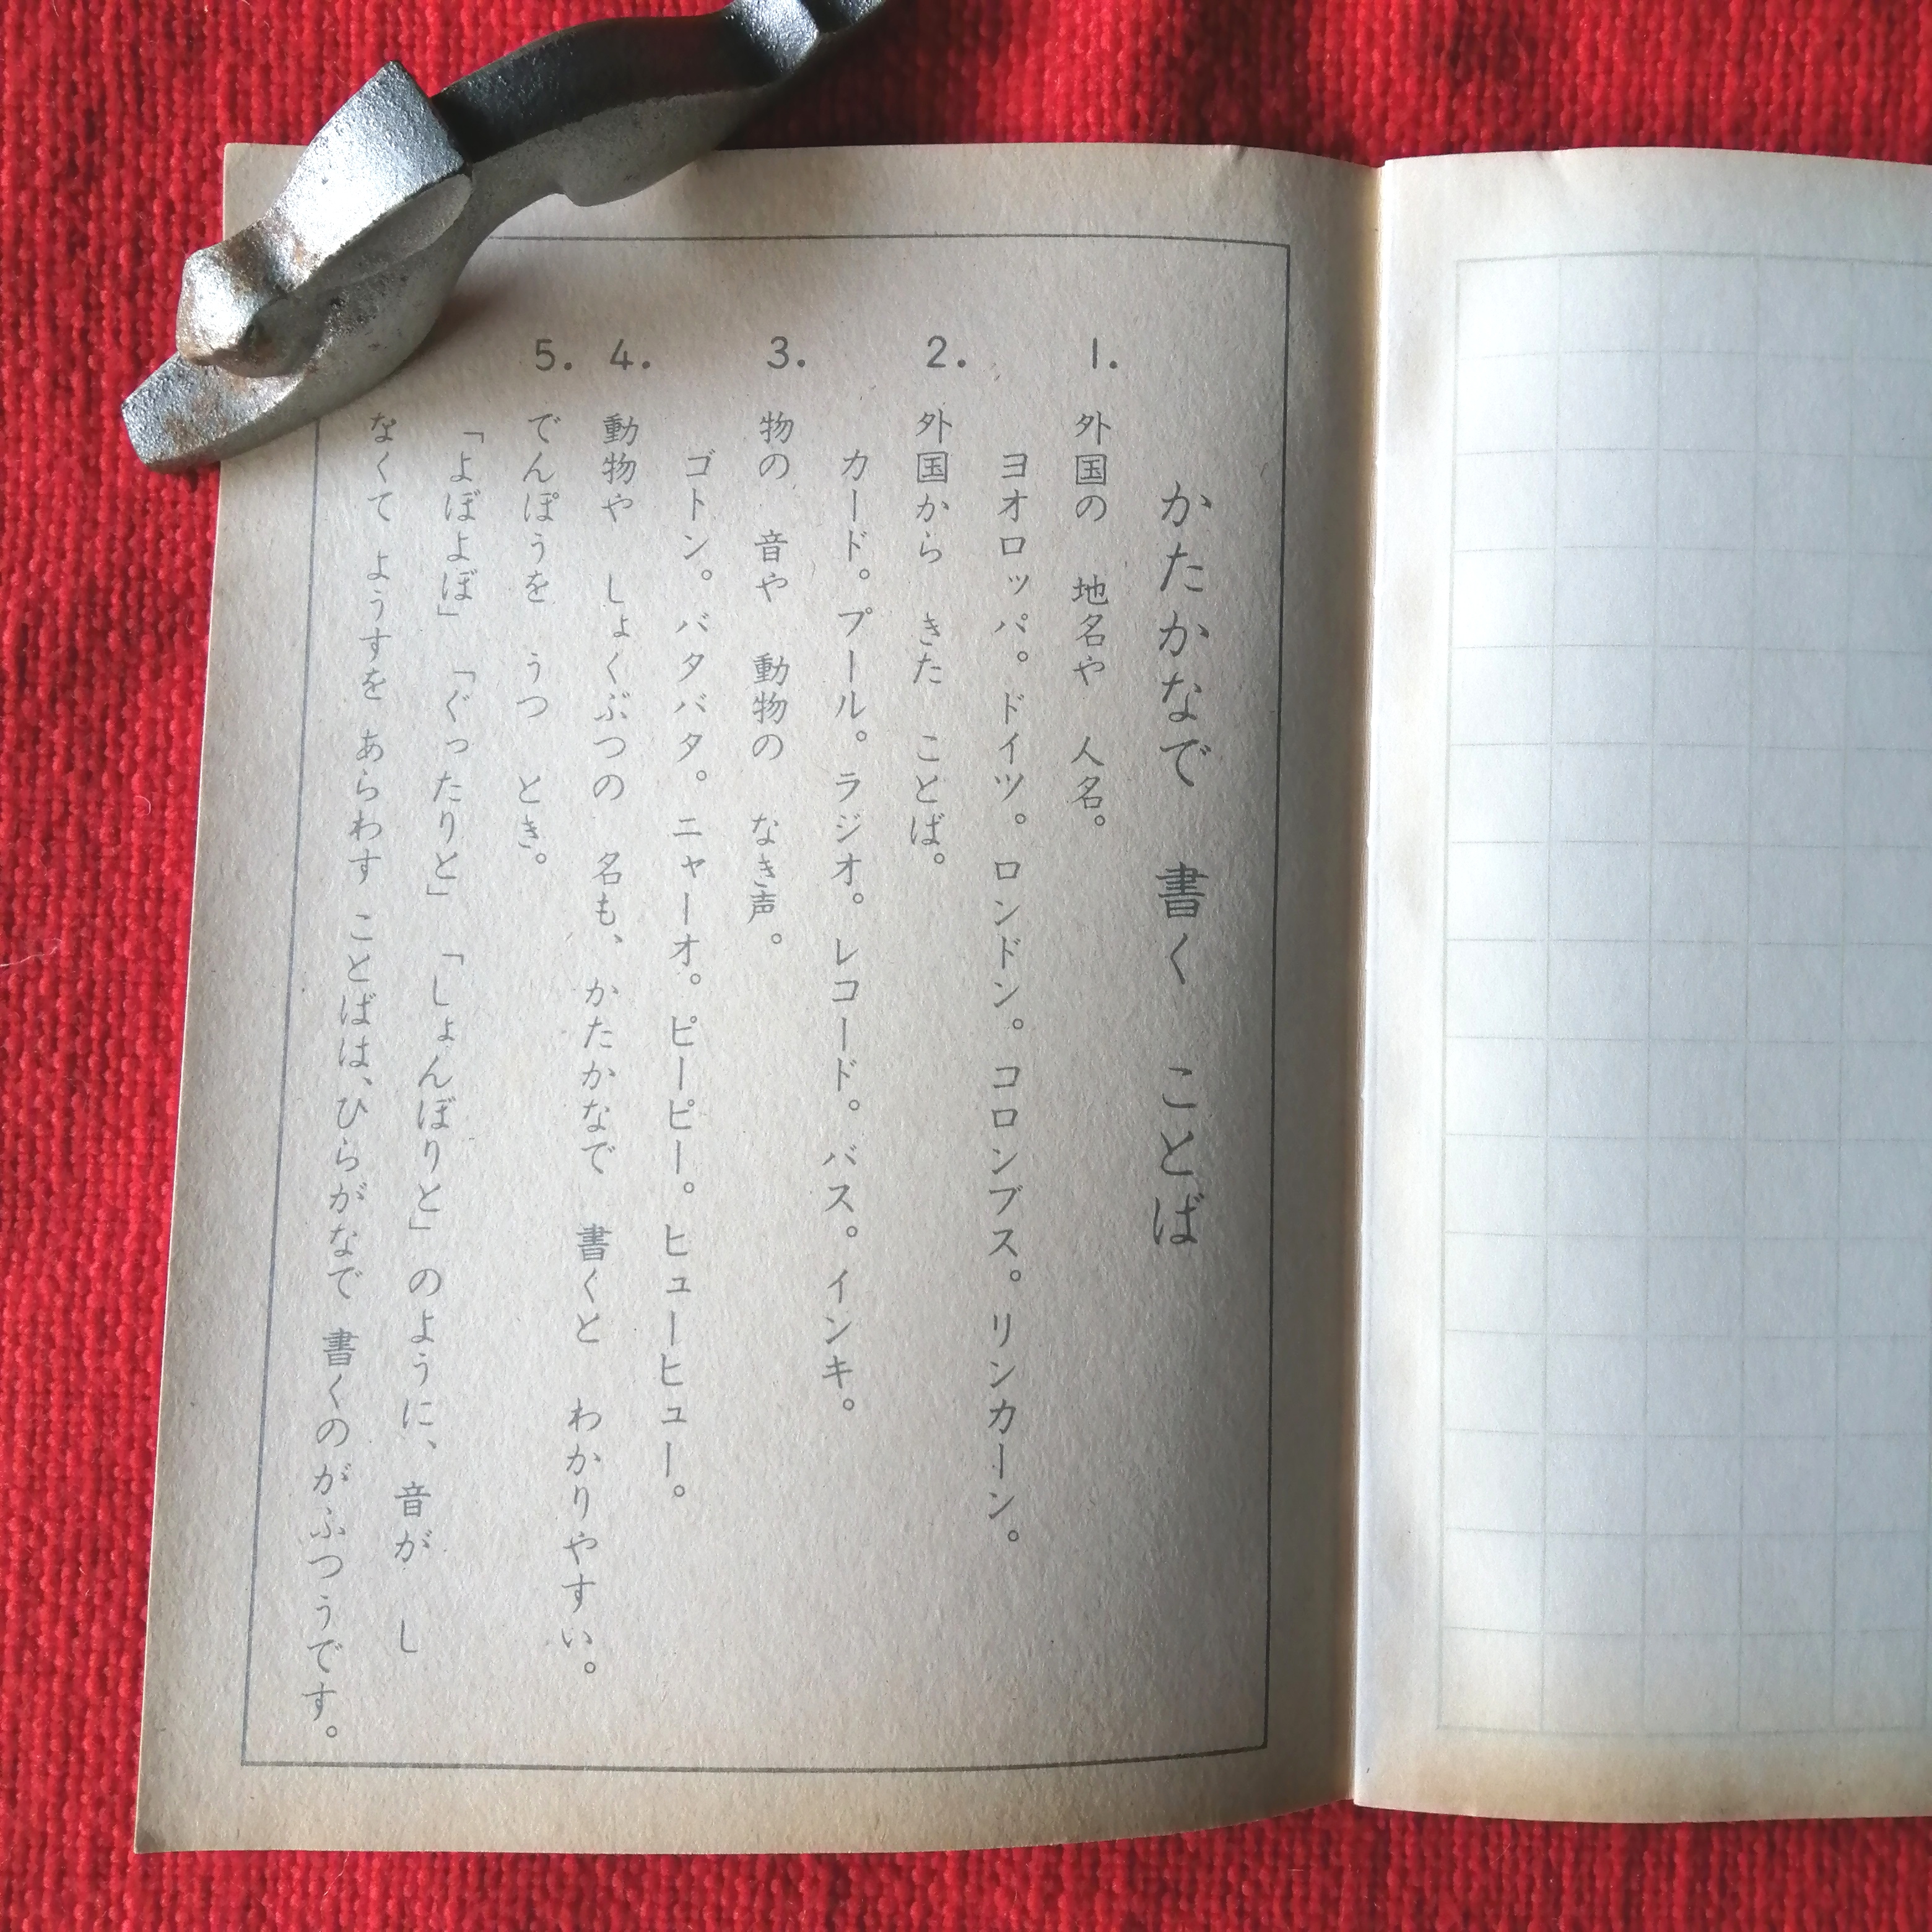 かたかなで 書く ことば
1. 外国の 地名や 人名。
ヨオロッパ。ドイツ。ロンドン。コロンブス。リンカーン。
2. 外国から きた ことば。
カード。プール。ラジオ。レコード。バス。インキ。
3. 物の 音や 動物の なき声。
ゴトン。バタバタ。ニャーオ。ピーピー。ヒューヒュー。
4. 動物や しょくぶつの 名も、かたかなで 書くと わかりやすい。
5. でんぽうを うつ とき。
「よぼよぼ」「ぐったりと」「しょんぼりと」のように、音が し
なくて ようすを あらわす ことばは、ひらがなで 書くのがふつうです。